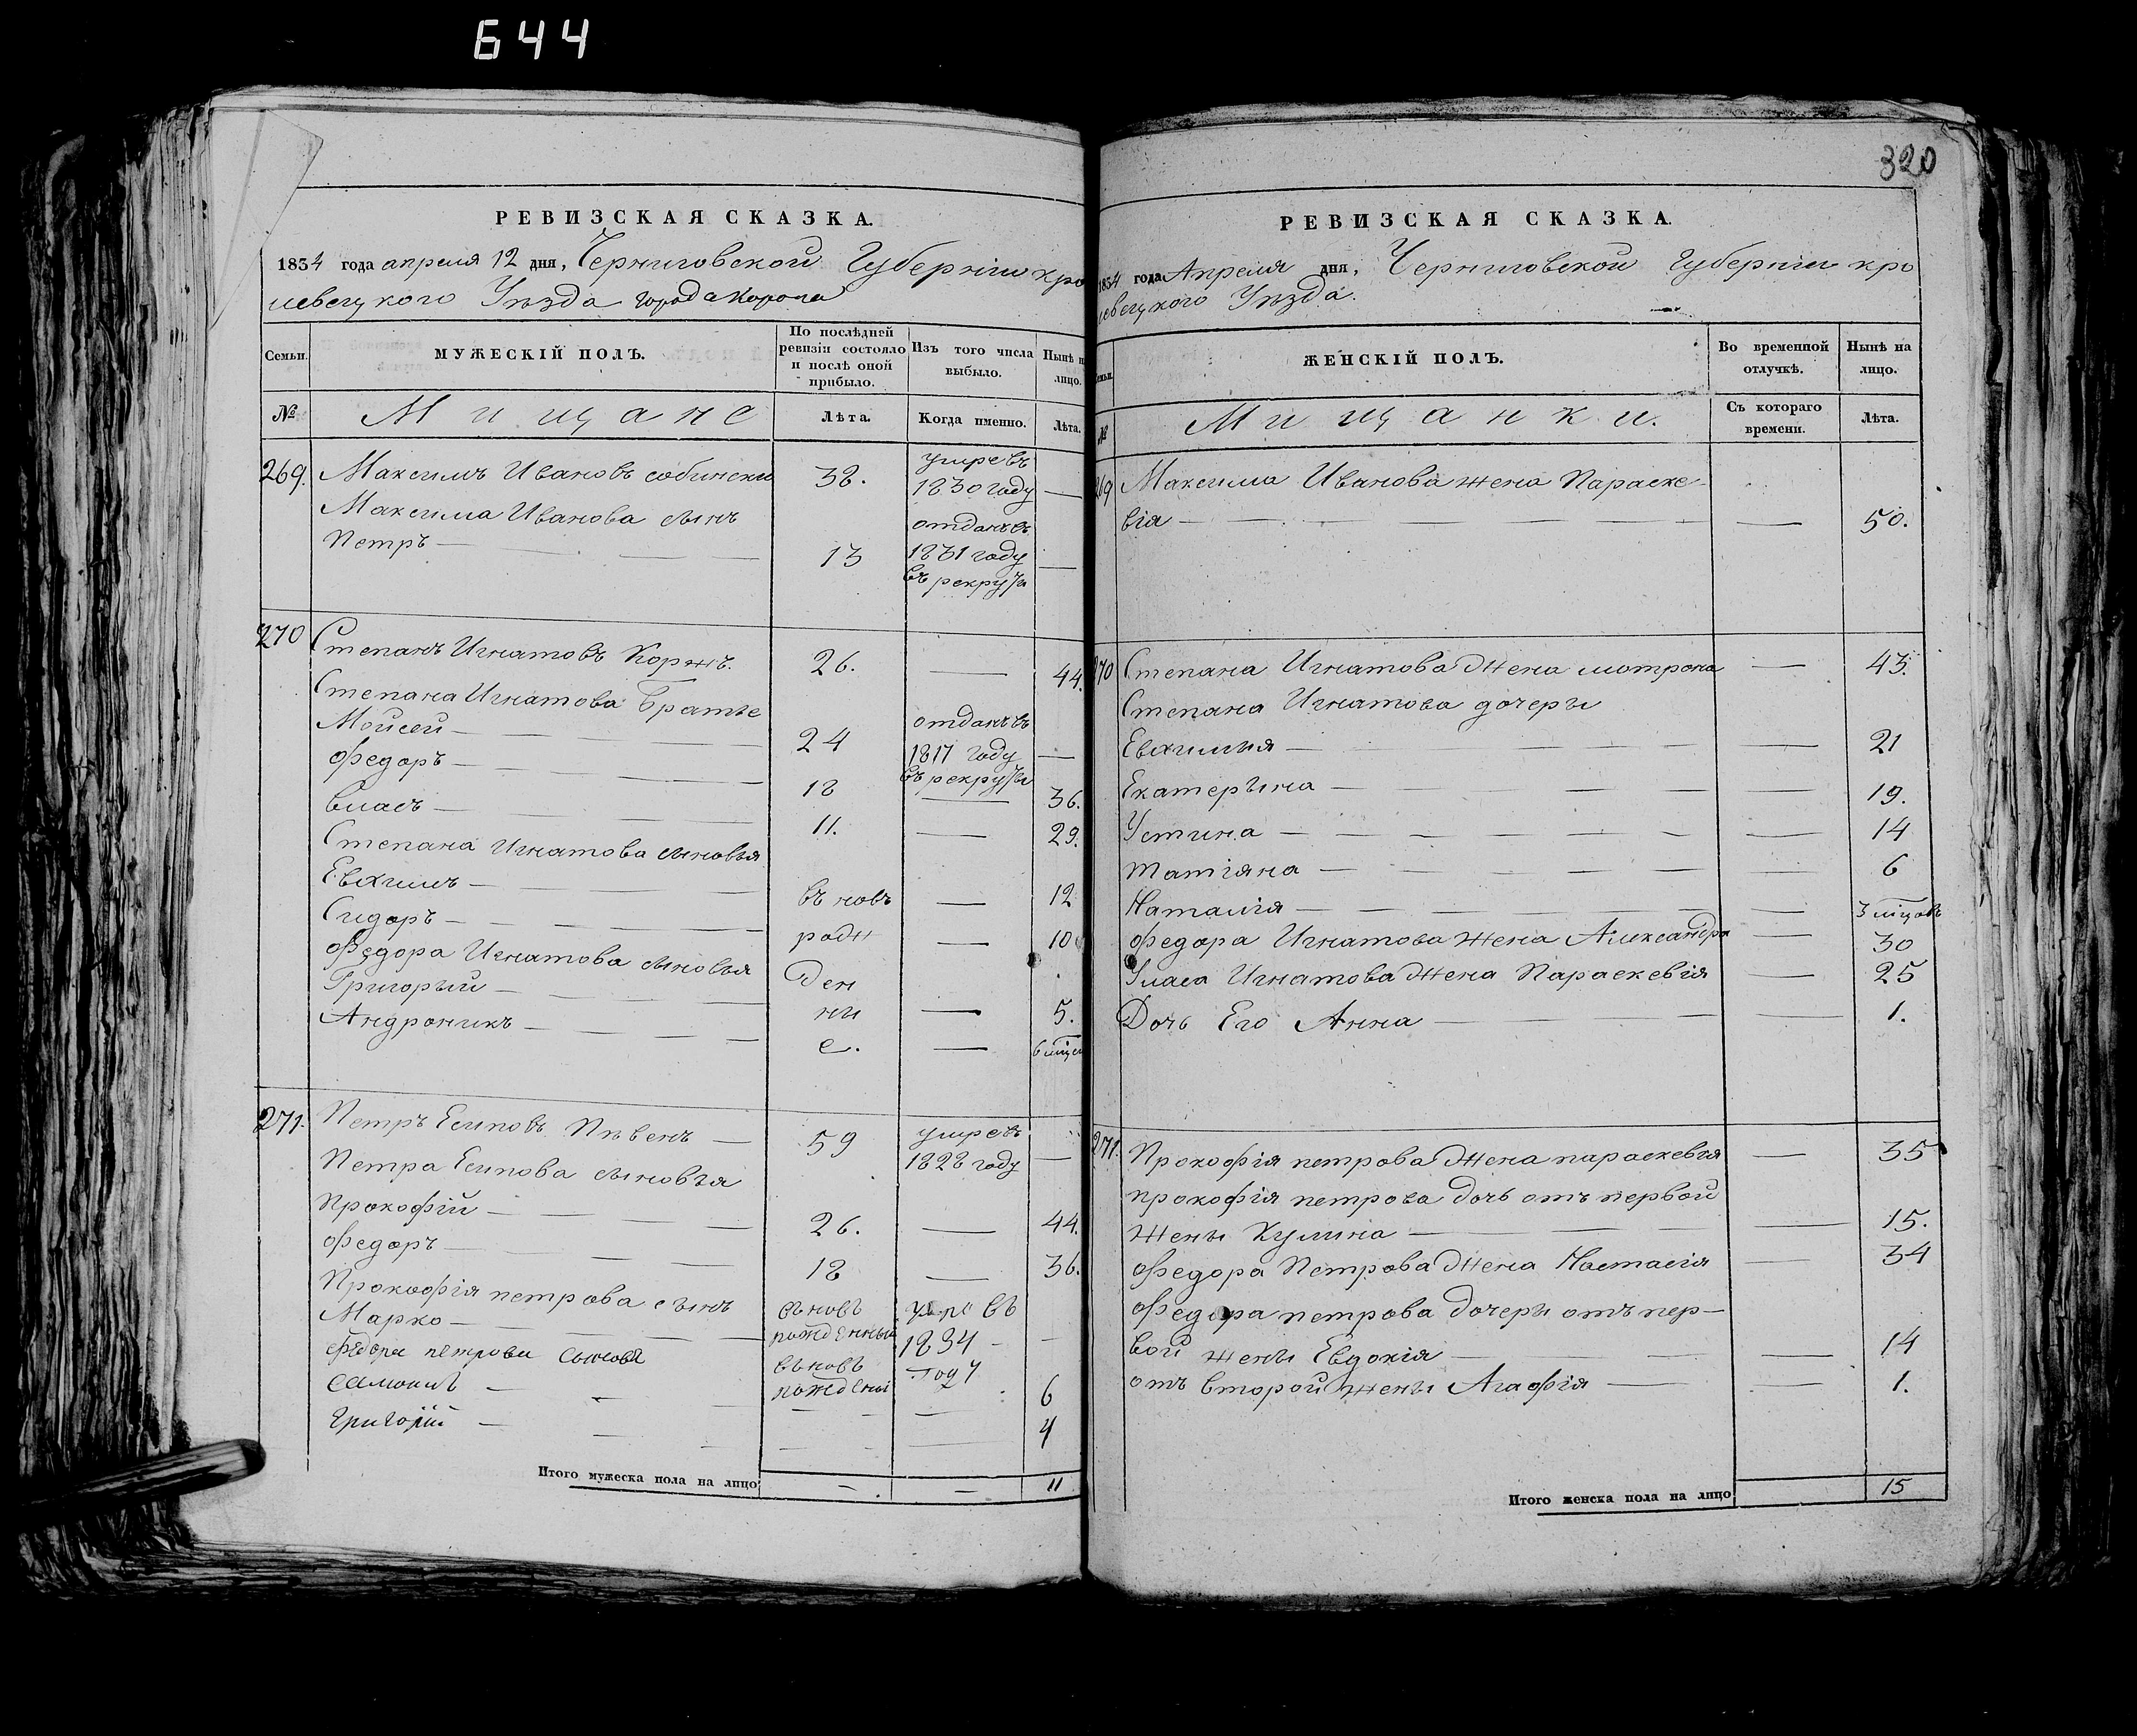 644
РЕВИЗСКАЯ СКАЗКА.
1834 года апреля 12 дня, Черниговской Губерніи кро
левецкого Уѣзда города Коропа
Семьи.
МУЖЕСКІЙ ПОЛЪ.
По послѣдней ревизіи состояло и послѣ оной прибыло.
Изъ того числа выбыло.
Нынѣ на лицо.
№
Мищане
Лѣта.
Когда именно.
Лѣта.
269. Максимъ Ивановъ собински 38. умре въ 1830 году —
Максима Иванова сынъ
Петръ — 13 отданъ въ 1831 году въ рекруты —
270 Степанъ Игнатовъ Коржъ. 26. — 44.
Степана Игнатова Братье
Мойсей — 24 отданъ въ 1817 году въ рекруты —
Федоръ — 18 — 36.
Власъ — 11. — 29.
Степана Игнатова сыновья
Евхимъ — въ новь — 12
Сидоръ — рож — 10
Федора Игнатова сыновья ден
Григорый — ни — 5.
Андроникъ — е. — 6 мѣся
271. Петръ Есиповъ Пѣвень — 59 умре въ 1828 году —
Петра Есипова сыновья
Прокофій — 26. — 44.
Федоръ — 18 — 36.
Прокофія петрова сынъ
Марко — въ новь рожденный умре въ 1834 году —
Федора петрова сыновя въ новь рождены
Самоилъ — 6
Григорій — 4
Итого мужеска пола на лицо — — 11
320
РЕВИЗСКАЯ СКАЗКА.
1834 года Апреля дня, Черниговской Губерніи кро
левецкого Уѣзда.
Семьи.
ЖЕНСКІЙ ПОЛЪ.
Во временной отлучкѣ.
Нынѣ на лицо.
№
Мищанки.
Съ котораго времени.
Лѣта.
269 Максима Иванова жена Параске-
вія — — 50.
270 Степана Игнатова жена мотрона — 43.
Степана Игнатова дочеры
Евхимия — — 21
Екатерына — — 19.
Устина — — 14
Татіяна — — 6
Наталія — — 3 мѣцовъ
Федора Игнатова жена Александра — 30
Уласа Игнатова жена Параскевія — 25
Дочь Его Анна — — 1.
271. Прокофія петрова жена параскевія — 35
прокофія петрова дочь отъ первой
жены Кулина — — 15.
Федора Петрова жена Настасія — 34
Федора петрова дочеры отъ пер-
вой жены Евдокія — — 14
отъ второй жены Агафія — — 1.
Итого женска пола на лицо 15